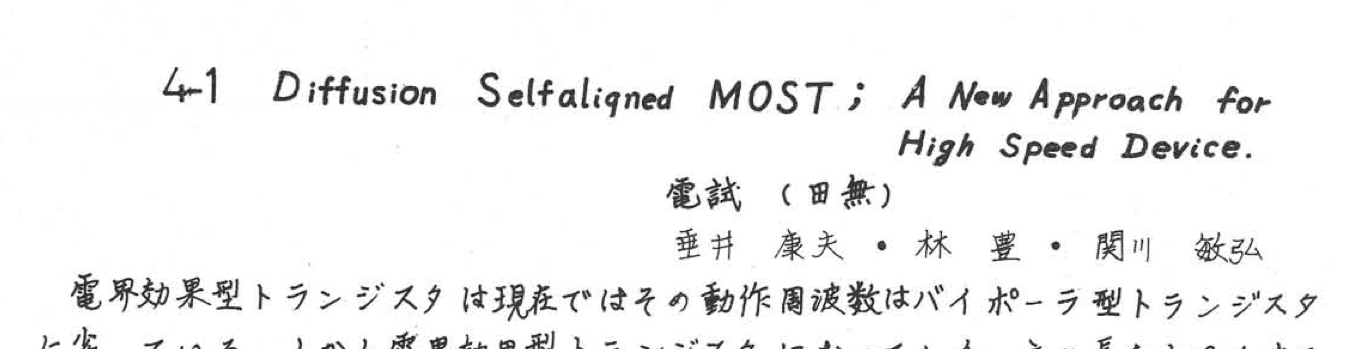 4-1 Diffusion Selfaligned MOST ; A New Approach for
High Speed Device.
電試 (田無)
垂井 康夫・林 豊・関川 敏弘
電界効果型トランジスタは現在ではその動作周波数はバイポーラ型トランジスタ